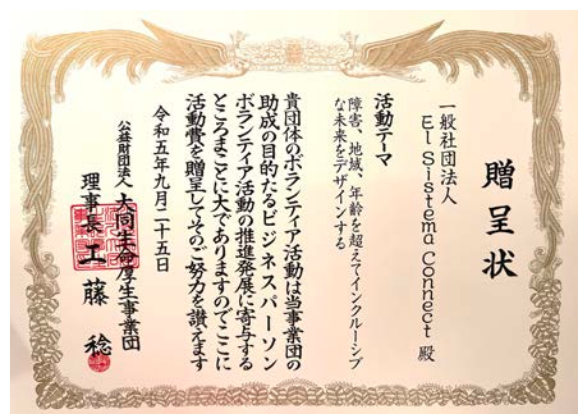 贈呈状
一般社団法人
El Sistema Connect 殿
活動テーマ
障害、地域、年齢を超えてインクルーシブ
な未来をデザインする
貴団体のボランティア活動は当事業団の
助成の目的たるビジネスパーソン
ボランティア活動の推進発展に寄与する
ところまことに大でありますのでここに
活動費を贈呈してそのご努力を讃えます
令和五年九月二十五日
公益財団法人 大同生命厚生事業団
理事長 工藤 稔